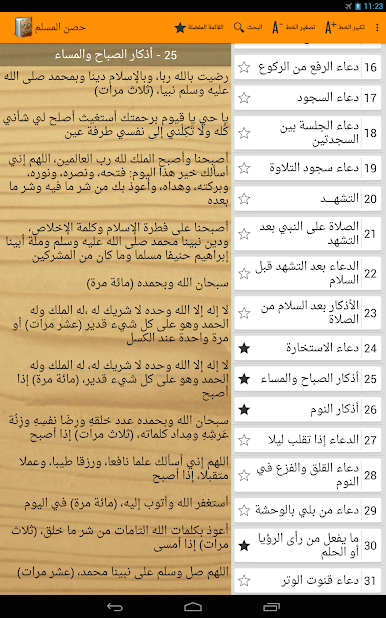 11:23
حصن المسلم
القائمة المفضلة
البحث
تصغير الخط A-
تكبير الخط A+
25 - أذكار الصباح والمساء
رضيت بالله ربا، وبالإسلام دينا وبمحمد صلى الله
عليه وسلم نبيا، (ثلاث مرات)
يا حي يا قيوم برحمتك أستغيث أصلح لي شأني
كله ولا تكلني إلى نفسي طرفة عين
أصبحنا وأصبح الملك لله رب العالمين، اللهم إني
أسألك خير هذا اليوم: فتحه، ونصره، ونوره،
وبركته، وهداه، وأعوذ بك من شر ما فيه وشر ما
بعده
أصبحنا على فطرة الإسلام وكلمة الإخلاص،
ودين نبينا محمد صلى الله عليه وسلم وملة أبينا
إبراهيم حنيفا مسلما وما كان من المشركين
سبحان الله وبحمده (مائة مرة)
لا إله إلا الله وحده لا شريك له، له الملك وله
الحمد وهو على كل شيء قدير (عشر مرات) أو
مرة واحدة عند الكسل
لا إله إلا الله وحده لا شريك له، له الملك وله
الحمد وهو على كل شيء قدير، (مائة مرة) إذا
أصبح
سبحان الله وبحمده عدد خلقه ورضا نفسه وزنة
عرشه ومداد كلماته، (ثلاث مرات) إذا أصبح
اللهم إني أسألك علما نافعا، ورزقا طيبا، وعملا
متقبلا، إذا أصبح
أستغفر الله وأتوب إليه، (مائة مرة) في اليوم
أعوذ بكلمات الله التامات من شر ما خلق، (ثلاث
مرات) إذا أمسى
اللهم صل وسلم على نبينا محمد، (عشر مرات)
16 دعاء الرفع من الركوع
17 دعاء السجود
18 دعاء الجلسة بين
السجدتين
19 دعاء سجود التلاوة
20 التشهـــد
21 الصلاة على النبي بعد
التشهد
22 الدعاء بعد التشهد قبل
السلام
23 الأذكار بعد السلام من
الصلاة
24 دعاء الاستخارة
25 أذكار الصباح والمساء
26 أذكار النوم
27 الدعاء إذا تقلب ليلا
28 دعاء القلق والفزع في
النوم
29 دعاء من بلي بالوحشة
30 ما يفعل من رأى الرؤيا
أو الحلم
31 دعاء قنوت الوتر